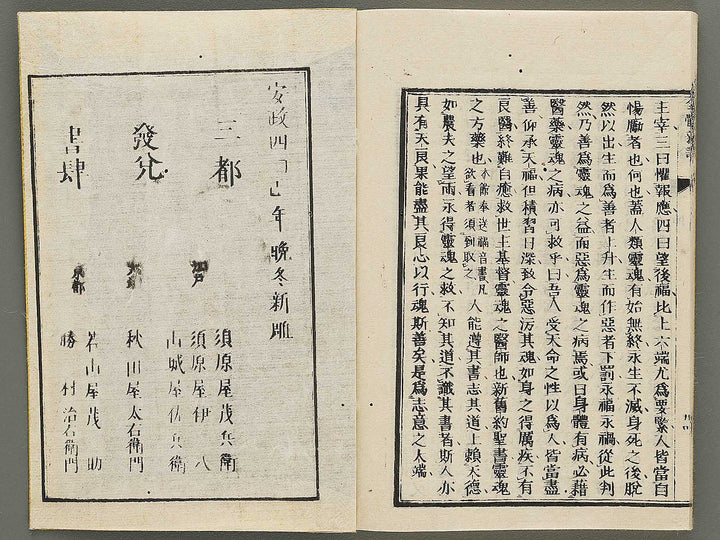 主宰三曰懼報應四曰望後福比上六端尤爲要緊人皆當自
惕勵者也何也蓋人類靈魂有始無終永生不滅身死之後脫
然以出生而爲善者上升生而作惡者下罰永福永禍從此判
然乃善爲靈魂之益而惡爲靈魂之病焉或曰身體有病必藉
醫藥靈魂之病亦可救乎曰吾人受天命之性以爲人皆當爲
善仰承天福但積習日深致令惡污其魂如身之得厲疾不有
良醫終難自癒救世主基督靈魂之醫師也新舊約聖書靈魂
之方藥也
本館奉送福音書凡
欲看者須到取之
人能遵其書志其道上賴天德
如農夫之望雨永得靈魂之救不知其道不識其書者斯人亦
具有天良果能盡其良心以行魂斯善矣是爲志意之大端
安政四丁巳年晩冬新雕
三都
發兌
書肆
江戸
須原屋茂兵衛
須原屋伊八
山城屋佐兵衛
大坂
秋田屋太右衛門
京都
若山屋茂助
勝村治右衛門